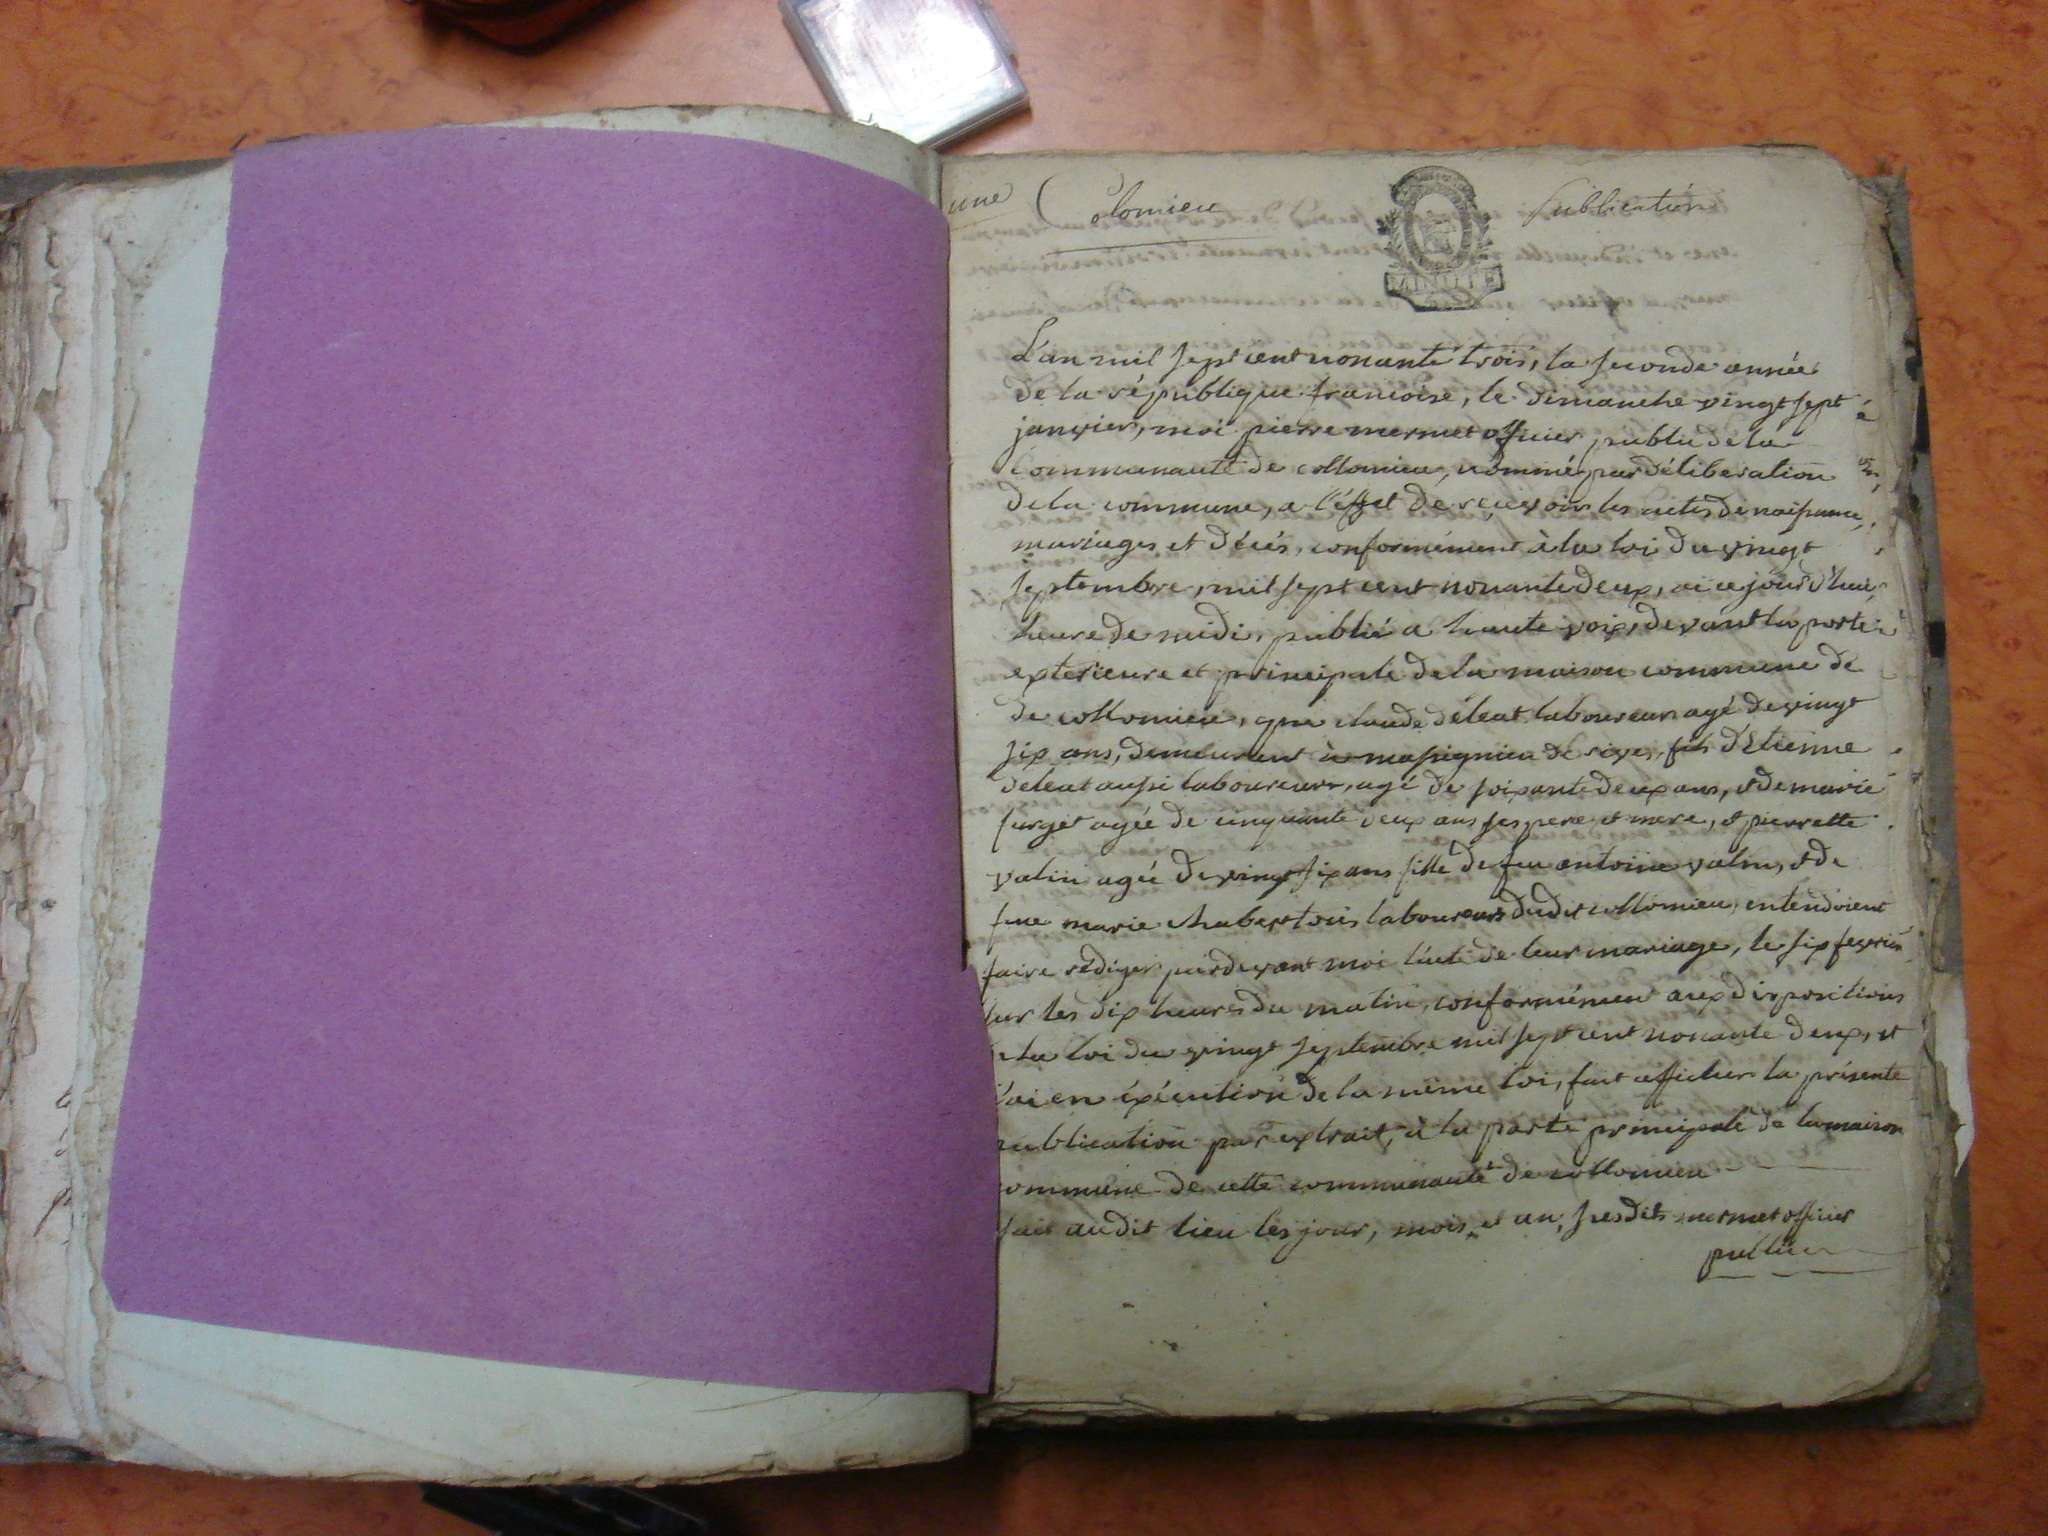 une Colomieu Publication
MINUTE
L'an mil sept cent nonante trois, la seconde année
de la république francoise, le dimanche vingt sept
janvier, moi pierre mermet officier public de la
communauté de collomieu, nommé par déliberation
de la commune, a l'éffet de reçevoir les actes de naissance,
mariages et décés, conformément à la loi du vingt
septembre, mil sept cent nonante deux, ai ce jourd'hui,
heure de midi, publié a haute voix, devant la porte
exterieure et principale de la maison commune de
de collomieu, que claude déleat laboureur agé de vingt
six ans, demeurant à massignieu de rive, fils d'Etienne
deleat aussi laboureur, agé de soixante deux ans, et de marie
surget agée de cinquante deux ans ses pere et mere, et pierrette
valin agée de vingt six ans fille de feu antoine valin, et de
feue marie chabert tous laboureurs dudit collomieu, entendoient
faire rédiger pardevant moi l'acte de leur mariage, le six fevrier
sur les dix heures du matin, conformément aux dispositions
de la loi du vingt septembre mil sept cent nonante deux, et
j'ai en éxécution de la même loi, fait afficher la présente
publication par extrait, à la porte principale de la maison
commune de cette communauté de collomieu
fait audit lieu les jour, mois, et an, susdits mermet officier
public